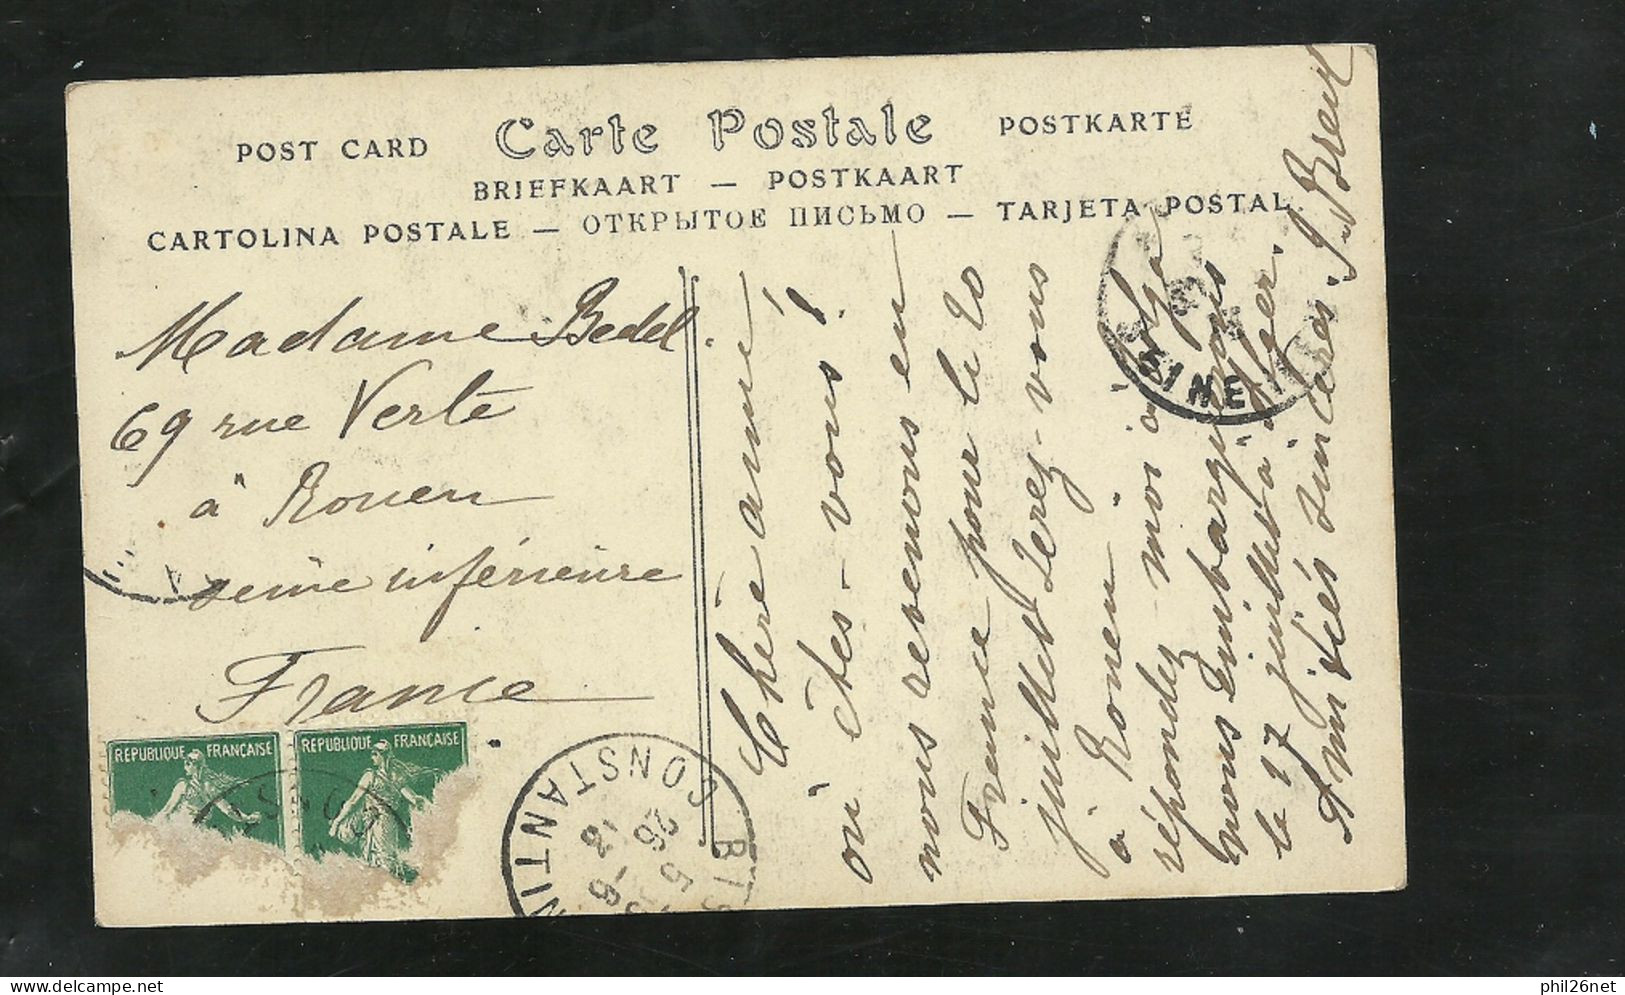 POST CARD Carte Postale POSTKARTE
BRIEFKAART — POSTKAART
CARTOLINA POSTALE — ОТКРЫТОЕ ПИСЬМО — TARJETA POSTAL.
Madame Bedel.
69 rue Verte
à Rouen
seine inférieure
France
REPUBLIQUE FRANÇAISE
REPUBLIQUE FRANÇAISE
CONSTANTIN
26 - 5
Chère amie!
où êtes-vous?
nous revenons en
France pour le 20
juillet serez-vous
à Rouen
répondez-moi à
nous embarquons
le 17 juillet à Alger.
Amitiés sincères.
INE
phil26net